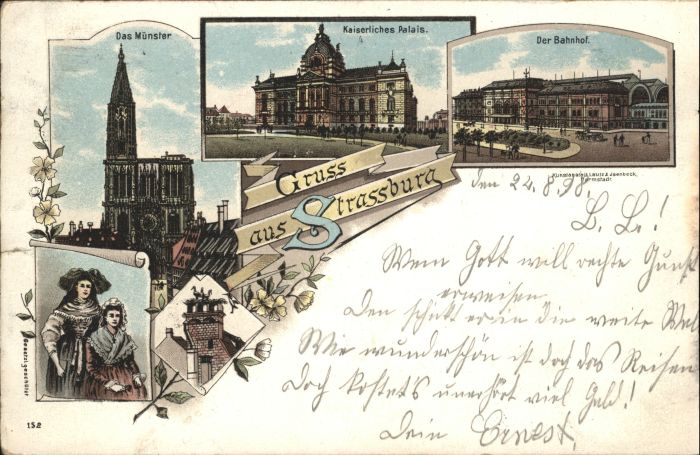 Das Münster
Kaiserliches Palais.
Der Bahnhof.
Gruss
aus Strassburg
Kunstanstalt Lautz & Isenbeck,
Darmstadt.
den 22.8.98.
B. L.!
Wem Gott will rechte Gunst
erweisen
Den schikt er in die weite Wel
Wie wunderschön ist doch das Reisen
Doch kostet's unerhört viel Geld!
Dein Ernest.
Gesetzl.geschützt
152